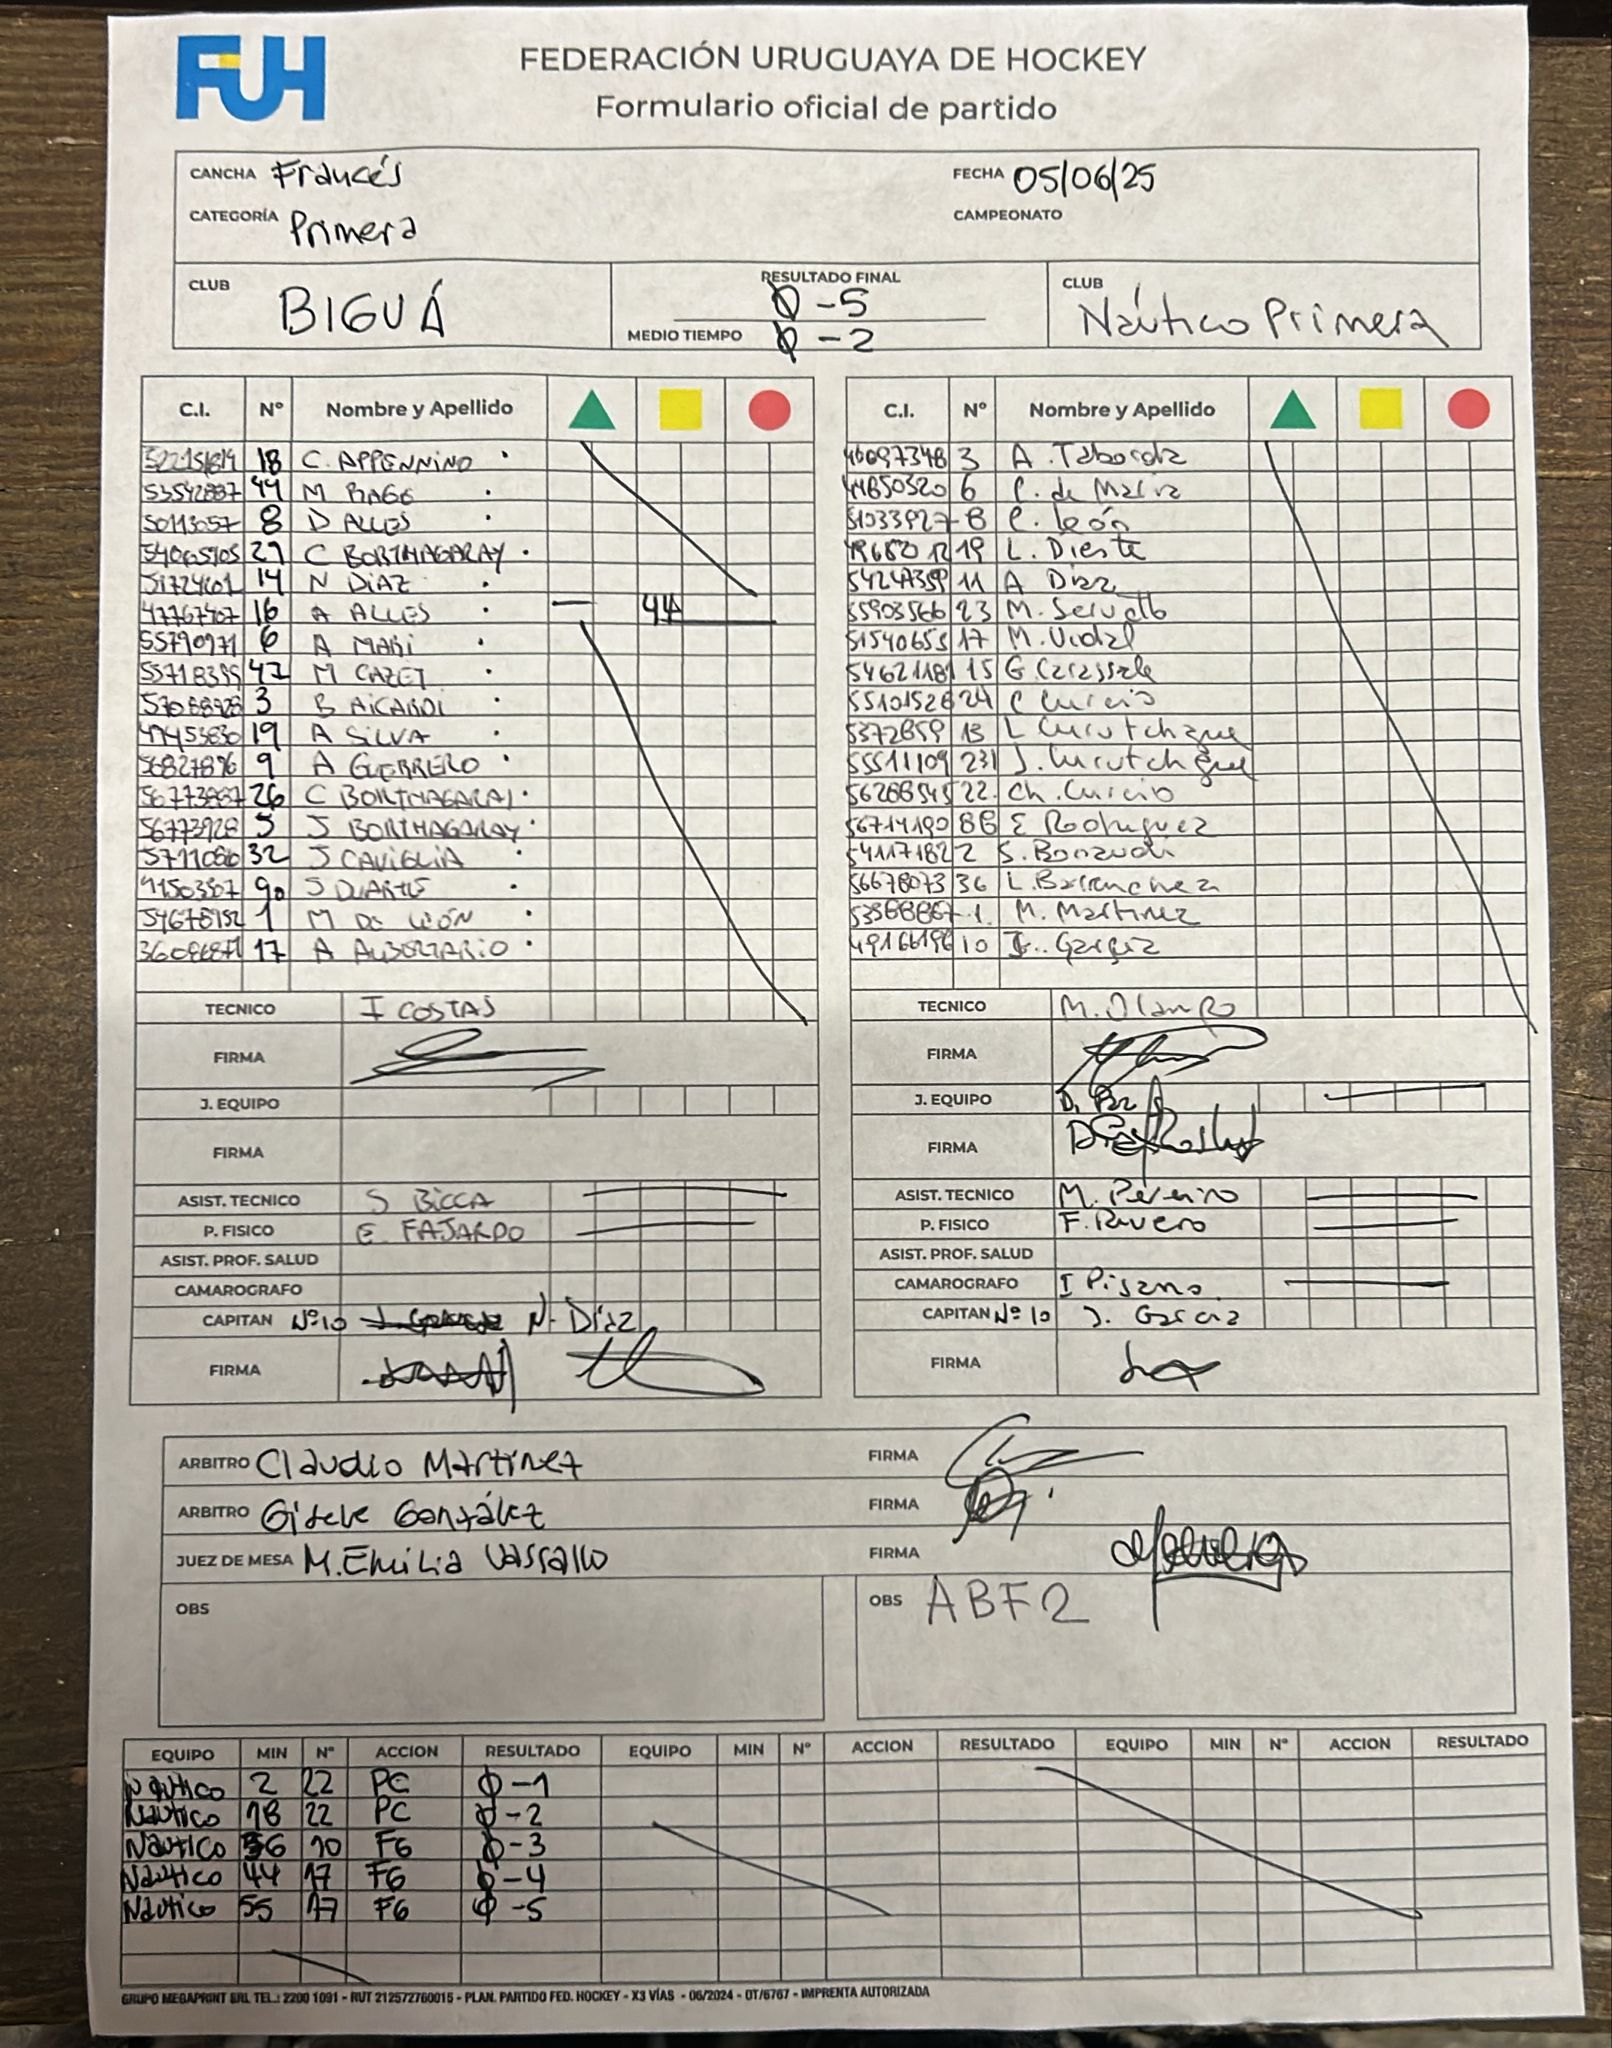 FUH
FEDERACIÓN URUGUAYA DE HOCKEY
Formulario oficial de partido
CANCHA Francés FECHA 05/06/25
CATEGORÍA Primera CAMPEONATO
CLUB BIGUÁ RESULTADO FINAL 0-5 CLUB Náutico Primera
MEDIO TIEMPO 0-2
C.I. Nº Nombre y Apellido C.I. Nº Nombre y Apellido
18 C. APPENNINO 3 A. Taborda
44 M 6 C. de María
8 D ALLES 8 C. León
C BORTHAGARAY 19 L. Dieste
14 N DíAZ 11 A Díaz
47767407 16 A ALLES 44 55903566 23 M.
6 A MARI 51540655 17 M. Vidal
47 M CAZET 54621181 15 G Carassale
3 B AICARDI 24 C Curcio
19 A SiLVA 13 L Curutchague
56827896 9 A GUERRERO 55511109 231 J. Curutchague
26 C BORTHAGARAY 22 Ch. Curcio
56773928 5 J BORTHAGARAY 56714190 88 E Rodriguez
32 J CAViGLIA 54117182 2 S.
90 S DUARTE 56678073 36 L. Barrenchea
1 M DE LEÓN 1. M. Martinez
17 A 49166196 10 J. García
TECNICO I COSTAS TECNICO M.
FIRMA FIRMA
J. EQUIPO J. EQUIPO D.
FIRMA FIRMA
ASIST. TECNICO S BICCA ASIST. TECNICO M. Pereiro
P. FISICO E. FAJARDO P. FISICO F. Rivero
ASIST. PROF. SALUD ASIST. PROF. SALUD
CAMAROGRAFO CAMAROGRAFO I Pisano.
CAPITAN Nº 10 N. Díaz CAPITAN Nº 10 J. García
FIRMA FIRMA
ARBITRO Claudio Martínez FIRMA
ARBITRO Gisele González FIRMA
JUEZ DE MESA M. Emilia Vassallo FIRMA
OBS OBS ABF2
EQUIPO MIN Nº ACCION RESULTADO EQUIPO MIN Nº ACCION RESULTADO EQUIPO MIN Nº ACCION RESULTADO
Náutico 2 22 PC 0-1
Náutico 18 22 PC 0-2
Náutico 36 10 FG 0-3
Náutico 44 17 FG 0-4
Náutico 55 17 FG 0-5
GRUPO MEGAPRINT SRL TEL.: 2200 1091 - RUT 212572760015 - PLAN. PARTIDO FED. HOCKEY - X3 VÍAS - 06/2024 - OT/6767 - IMPRENTA AUTORIZADA